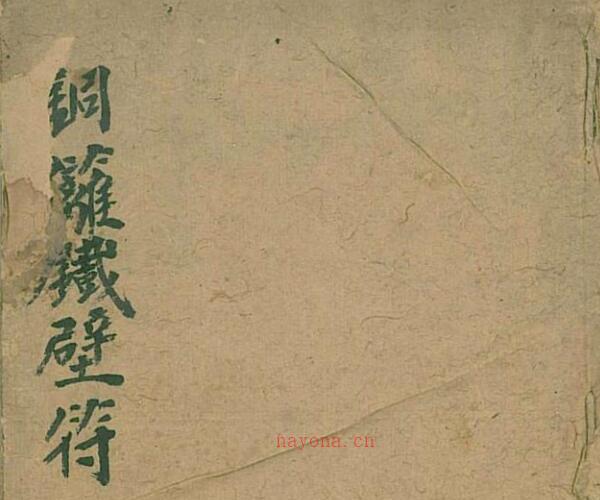 銅籬鐵壁符
nayona.cn